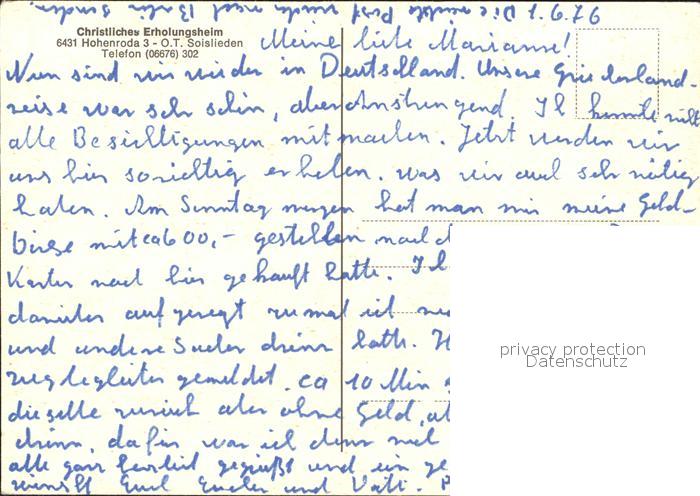 97.9.1. Die nächste Post wieder nach Berlin senden.
Christliches Erholungsheim
6431 Hohenroda 3 - O.T. Soislieden
Telefon (06676) 302
Meine liebe Marianne!
Nun sind wir wieder in Deutschland. Unsere Griechenland-
reise war sehr schön, aber Anstrengend. Ich konnte nicht
alle Besichtigungen mitmachen. Jetzt werden wir
uns hier so richtig erholen. was wir auch sehr nötig
haben. Am Sonntag morgen hat man mir meine Geld-
börse mit ca 600,- gestohlen nach
Karten nach hier gekauft hatte. Ich
darüber aufgeregt zumal ich
und andere Sachen drinn hatte.
zugbegleiter gemeldet. ca 10 Min
dieselbe zurück aber ohne Geld,
drinn, dafür war ich denn
alle ganz herzlich gegrüßt und ein
wünscht Euch und Vati.
privacy protection
Datenschutz